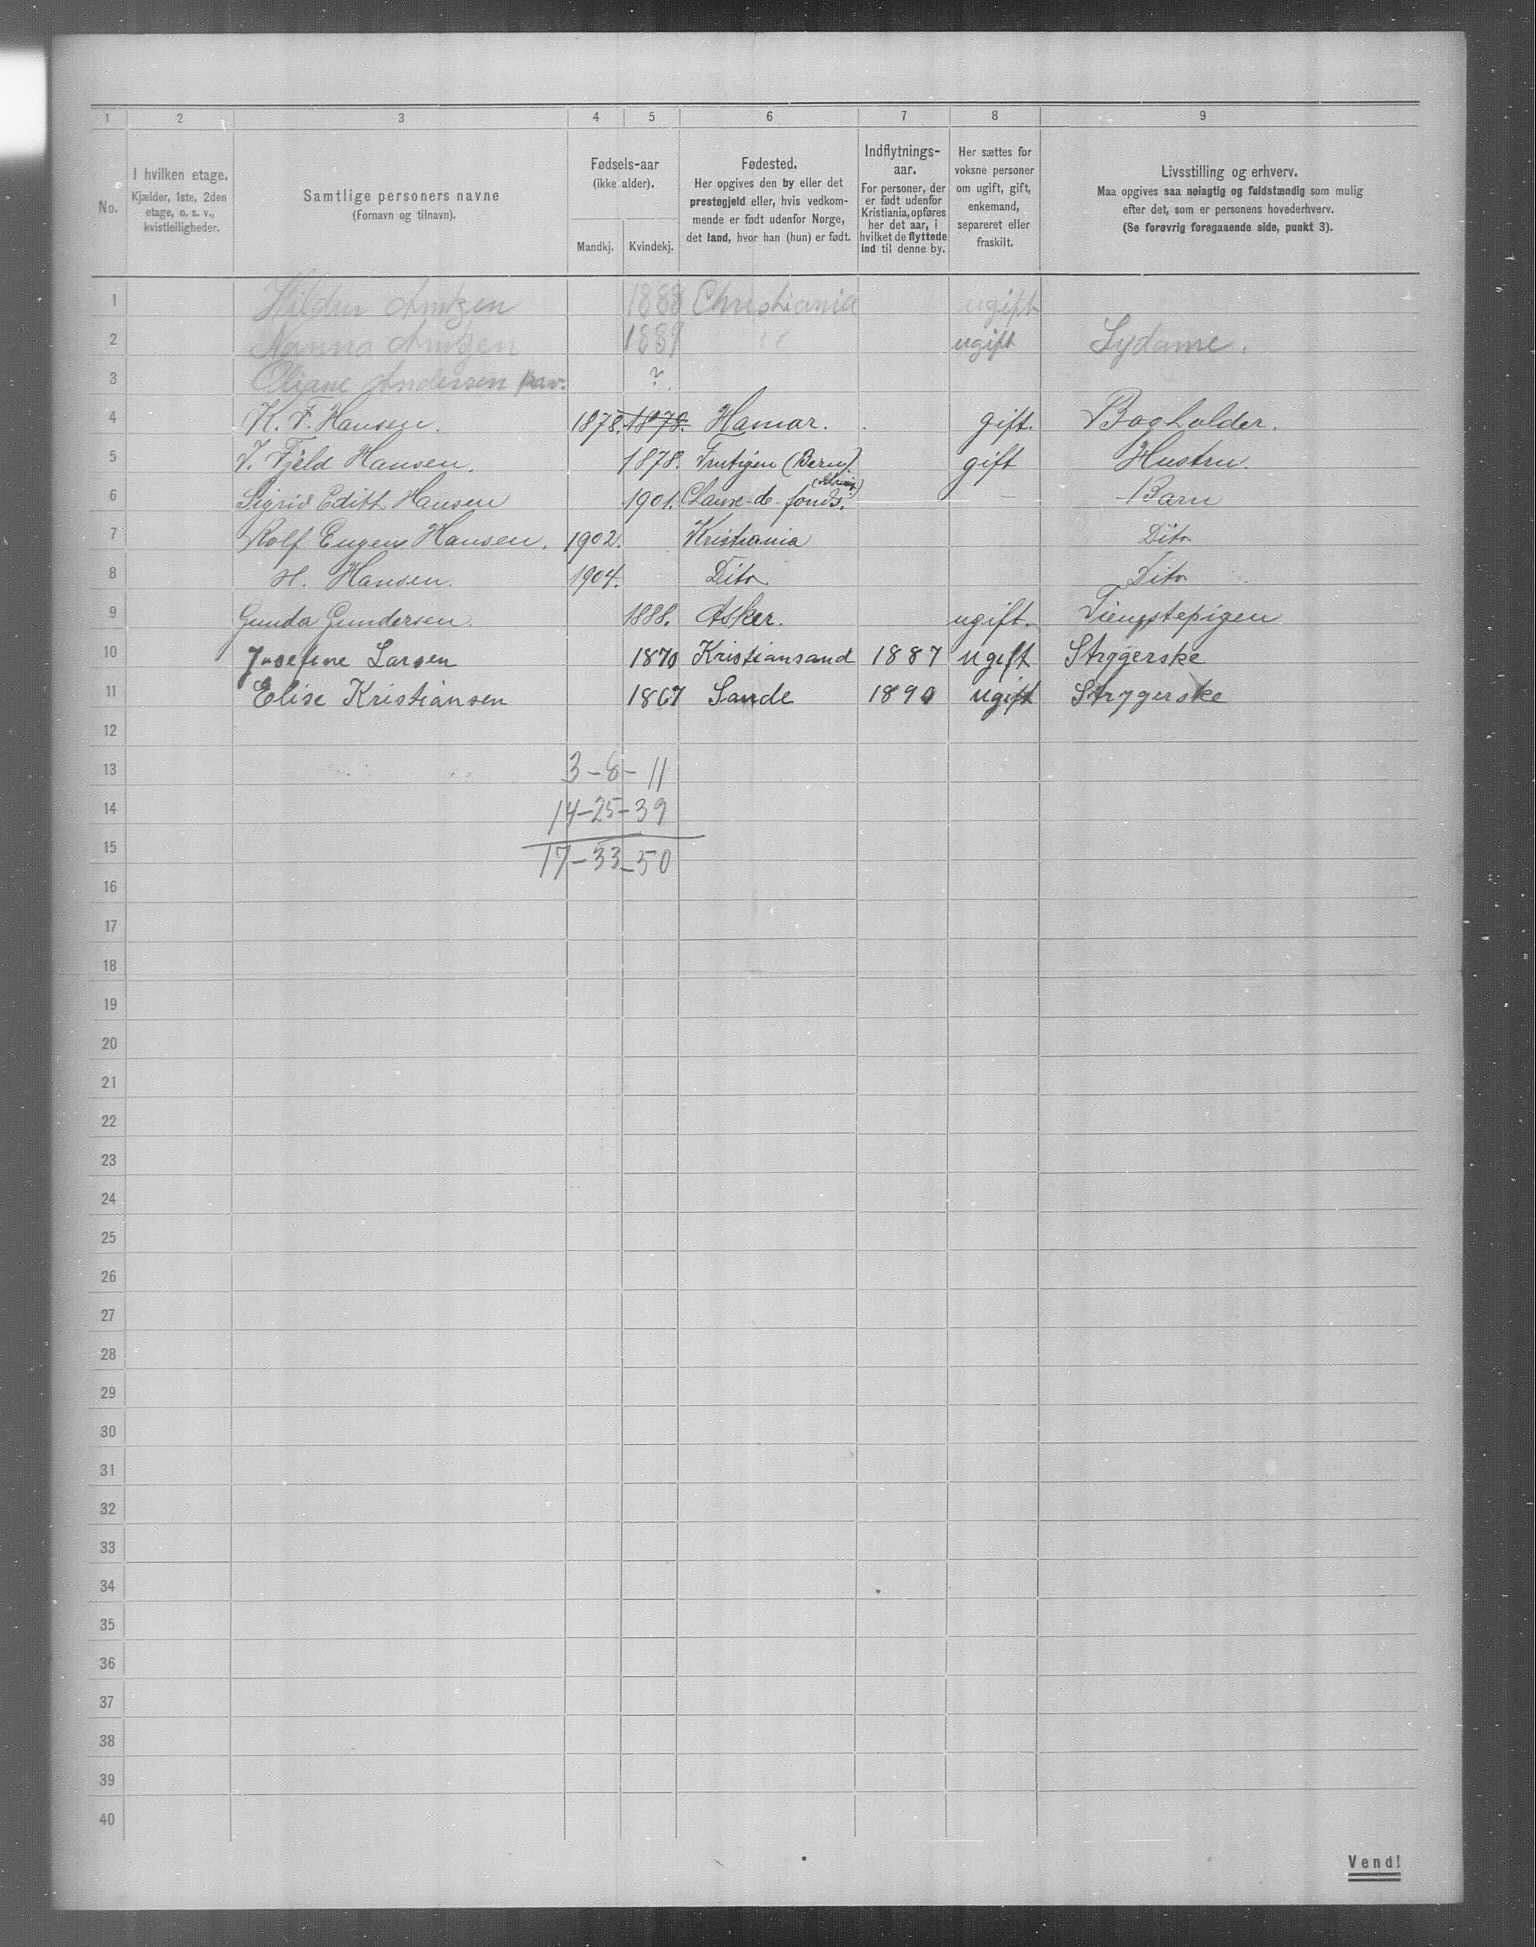 1 2 3 4 5 6 7 8 9
No.
I hvilken etage.
Kjælder, 1ste, 2den
etage, o. s. v.,
kvistleiligheder.
Samtlige personers navne
(Fornavn og tilnavn).
Fødsels-aar
(ikke alder).
Mandkj. Kvindekj.
Fødested.
Her opgives den by eller det
prestegjeld eller, hvis vedkom-
mende er født udenfor Norge,
det land, hvor han (hun) er født.
Indflytnings-
aar.
For personer, der
er født udenfor
Kristiania, opføres
her det aar, i
hvilket de flyttede
ind til denne by.
Her sættes for
voksne personer
om ugift, gift,
enkemand,
separeret eller
fraskilt.
Livsstilling og erhverv.
Maa opgives saa nøiagtig og fuldstændig som mulig
efter det, som er personens hovederhverv.
(Se forøvrig foregaaende side, punkt 3).
1 Hildur Arntzen 1888 Christiania ugift
2 Nanna Arntzen 1889 " ugift Sydame.
3 Oliane Andersen ?
4 K. F. Hansen. 1878. 1878. Hamar. gift. Bogholder.
5 V. Fjeld Hansen. 1878. Frutigen (Bern). gift Hustru.
6 Sigrid Edith Hansen 1901. Chaux-de-fonds. - Barn
7 Rolf Eugen Hansen. 1902. Kristiania Dito
8 H. Hansen. 1904. Dito Dito
9 Gunda Gundersen. 1888. Asker. ugift. Tienstepigen
10 Josefine Larsen 1870 Kristiansand 1887 ugift Strygerske
11 Elise Kristiansen 1867 Sande 1890 ugift Strygerske
12
13 3-8-11
14 14-25-39
15 17-33-50
16
17
18
19
20
21
22
23
24
25
26
27
28
29
30
31
32
33
34
35
36
37
38
39
40
Vend!